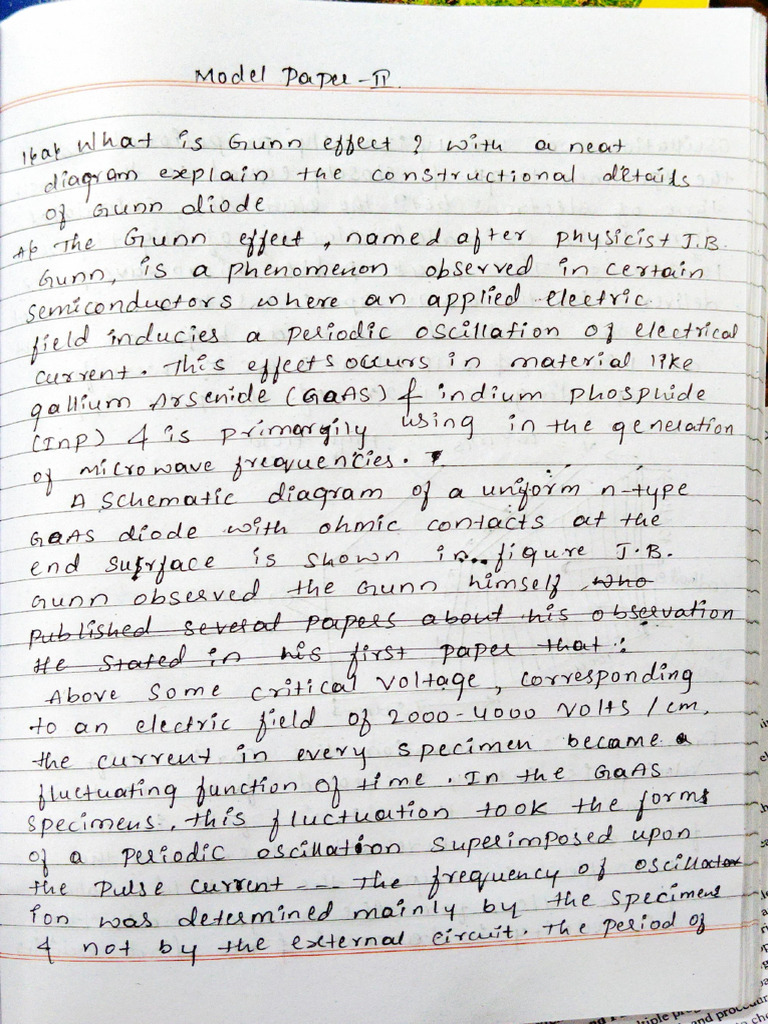 Model Paper -II.
1(a) What is Gunn effect ? with a neat
diagram explain the constructional details
of Gunn diode
A) The Gunn effect, named after physicist J.B.
Gunn, is a phenomenon observed in certain
semiconductors where an applied electric
field inducies a periodic oscillation of electrical
current. This effects occurs in material like
gallium Arsenide (GaAs) & indium phosphide
(InP) & is primargily using in the generation
of microwave frequencies.
A schematic diagram of a uniform n-type
GaAs diode with ohmic contacts at the
end surface is shown in figure J.B.
Gunn observed the Gunn himself who
published several papers about his observation
He stated in his first paper that :
Above some critical voltage, corresponding
to an electric field of 2000-4000 volts / cm,
the current in every specimen became a
fluctuating function of time. In the GaAs
specimens, this fluctuation took the forms
of a periodic oscillation superimposed upon
the pulse current --- The frequency of oscillat
ion was determined mainly by the specimens
& not by the external circuit. The period of